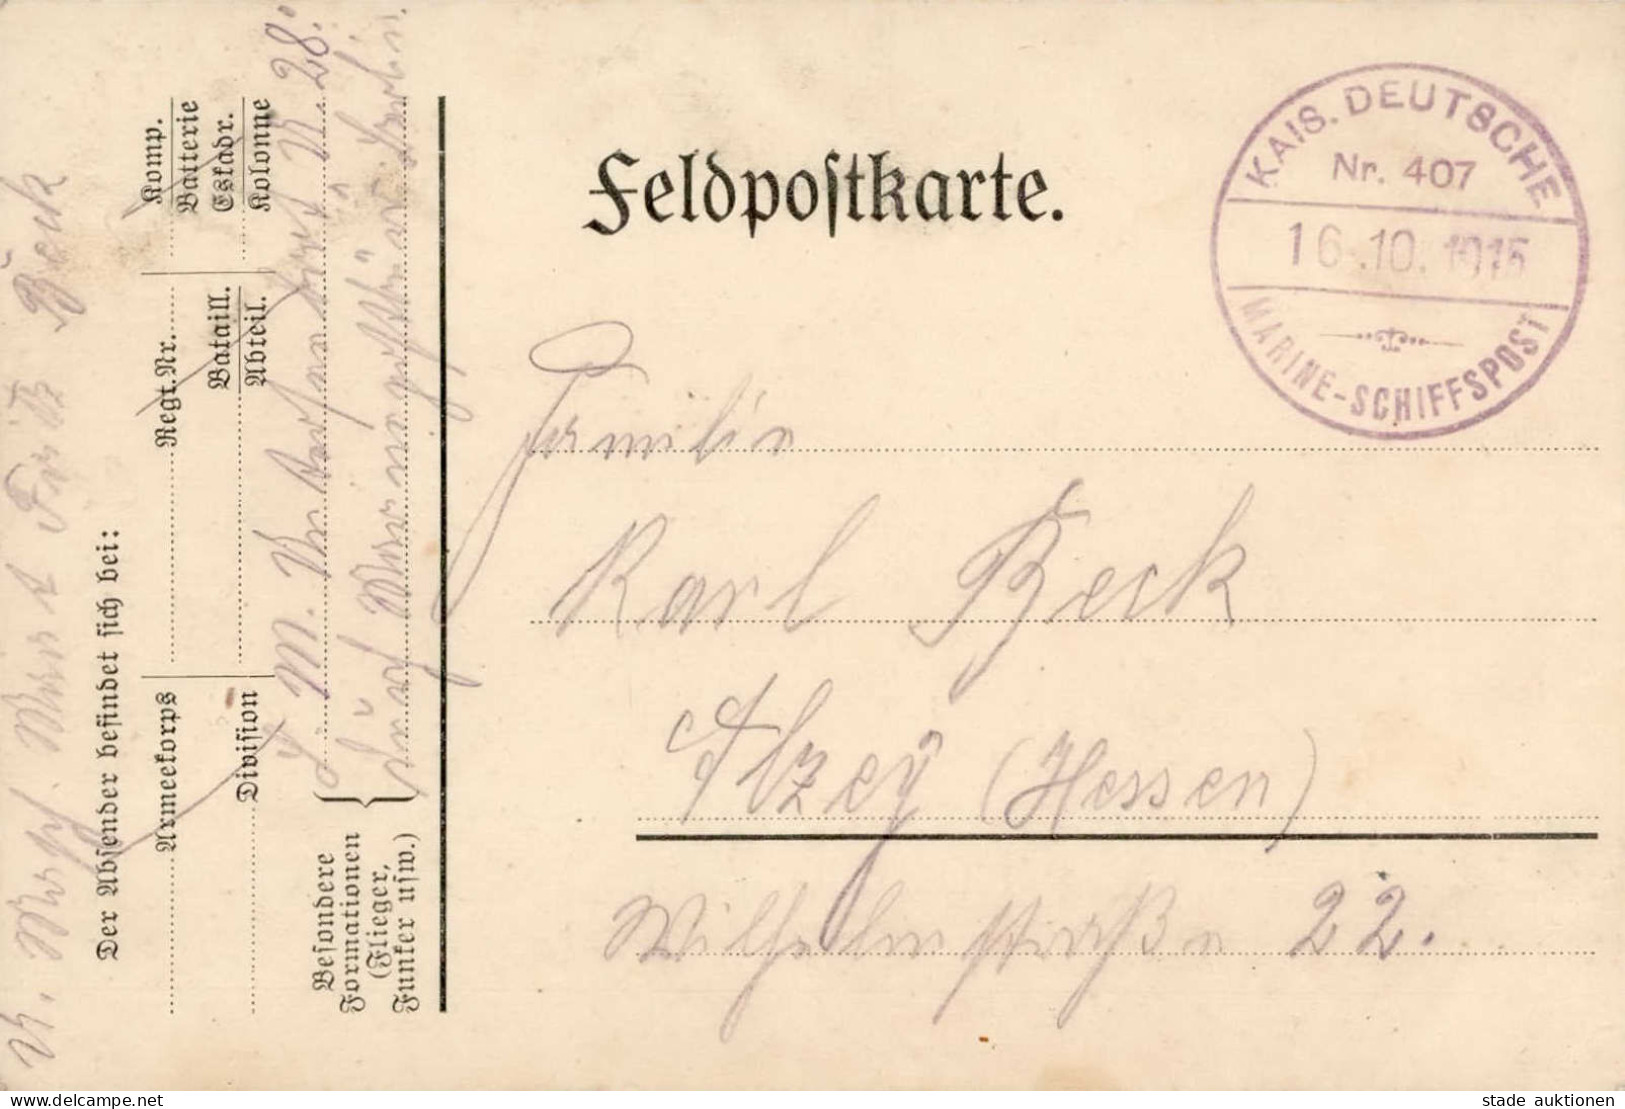 Feldpostkarte.
KAIS. DEUTSCHE
Nr. 407
16.10.1915
MARINE-SCHIFFSPOST
Familie
Karl Beck
Alzey (Hessen)
Wilhelmstraße 22.
Fritz Beck
Der Absender befindet sich bei:
Armeekorps
Regt. Nr.
Komp.
Batterie
Division
Bataill.
Abteil.
Eskadr.
Kolonne
Besondere
Formationen
(Flieger,
Funker usw.)
S. M. Unterseeboot U. 28.
Marinepostbüro Berlin.
delcampe.net
stade auktionen